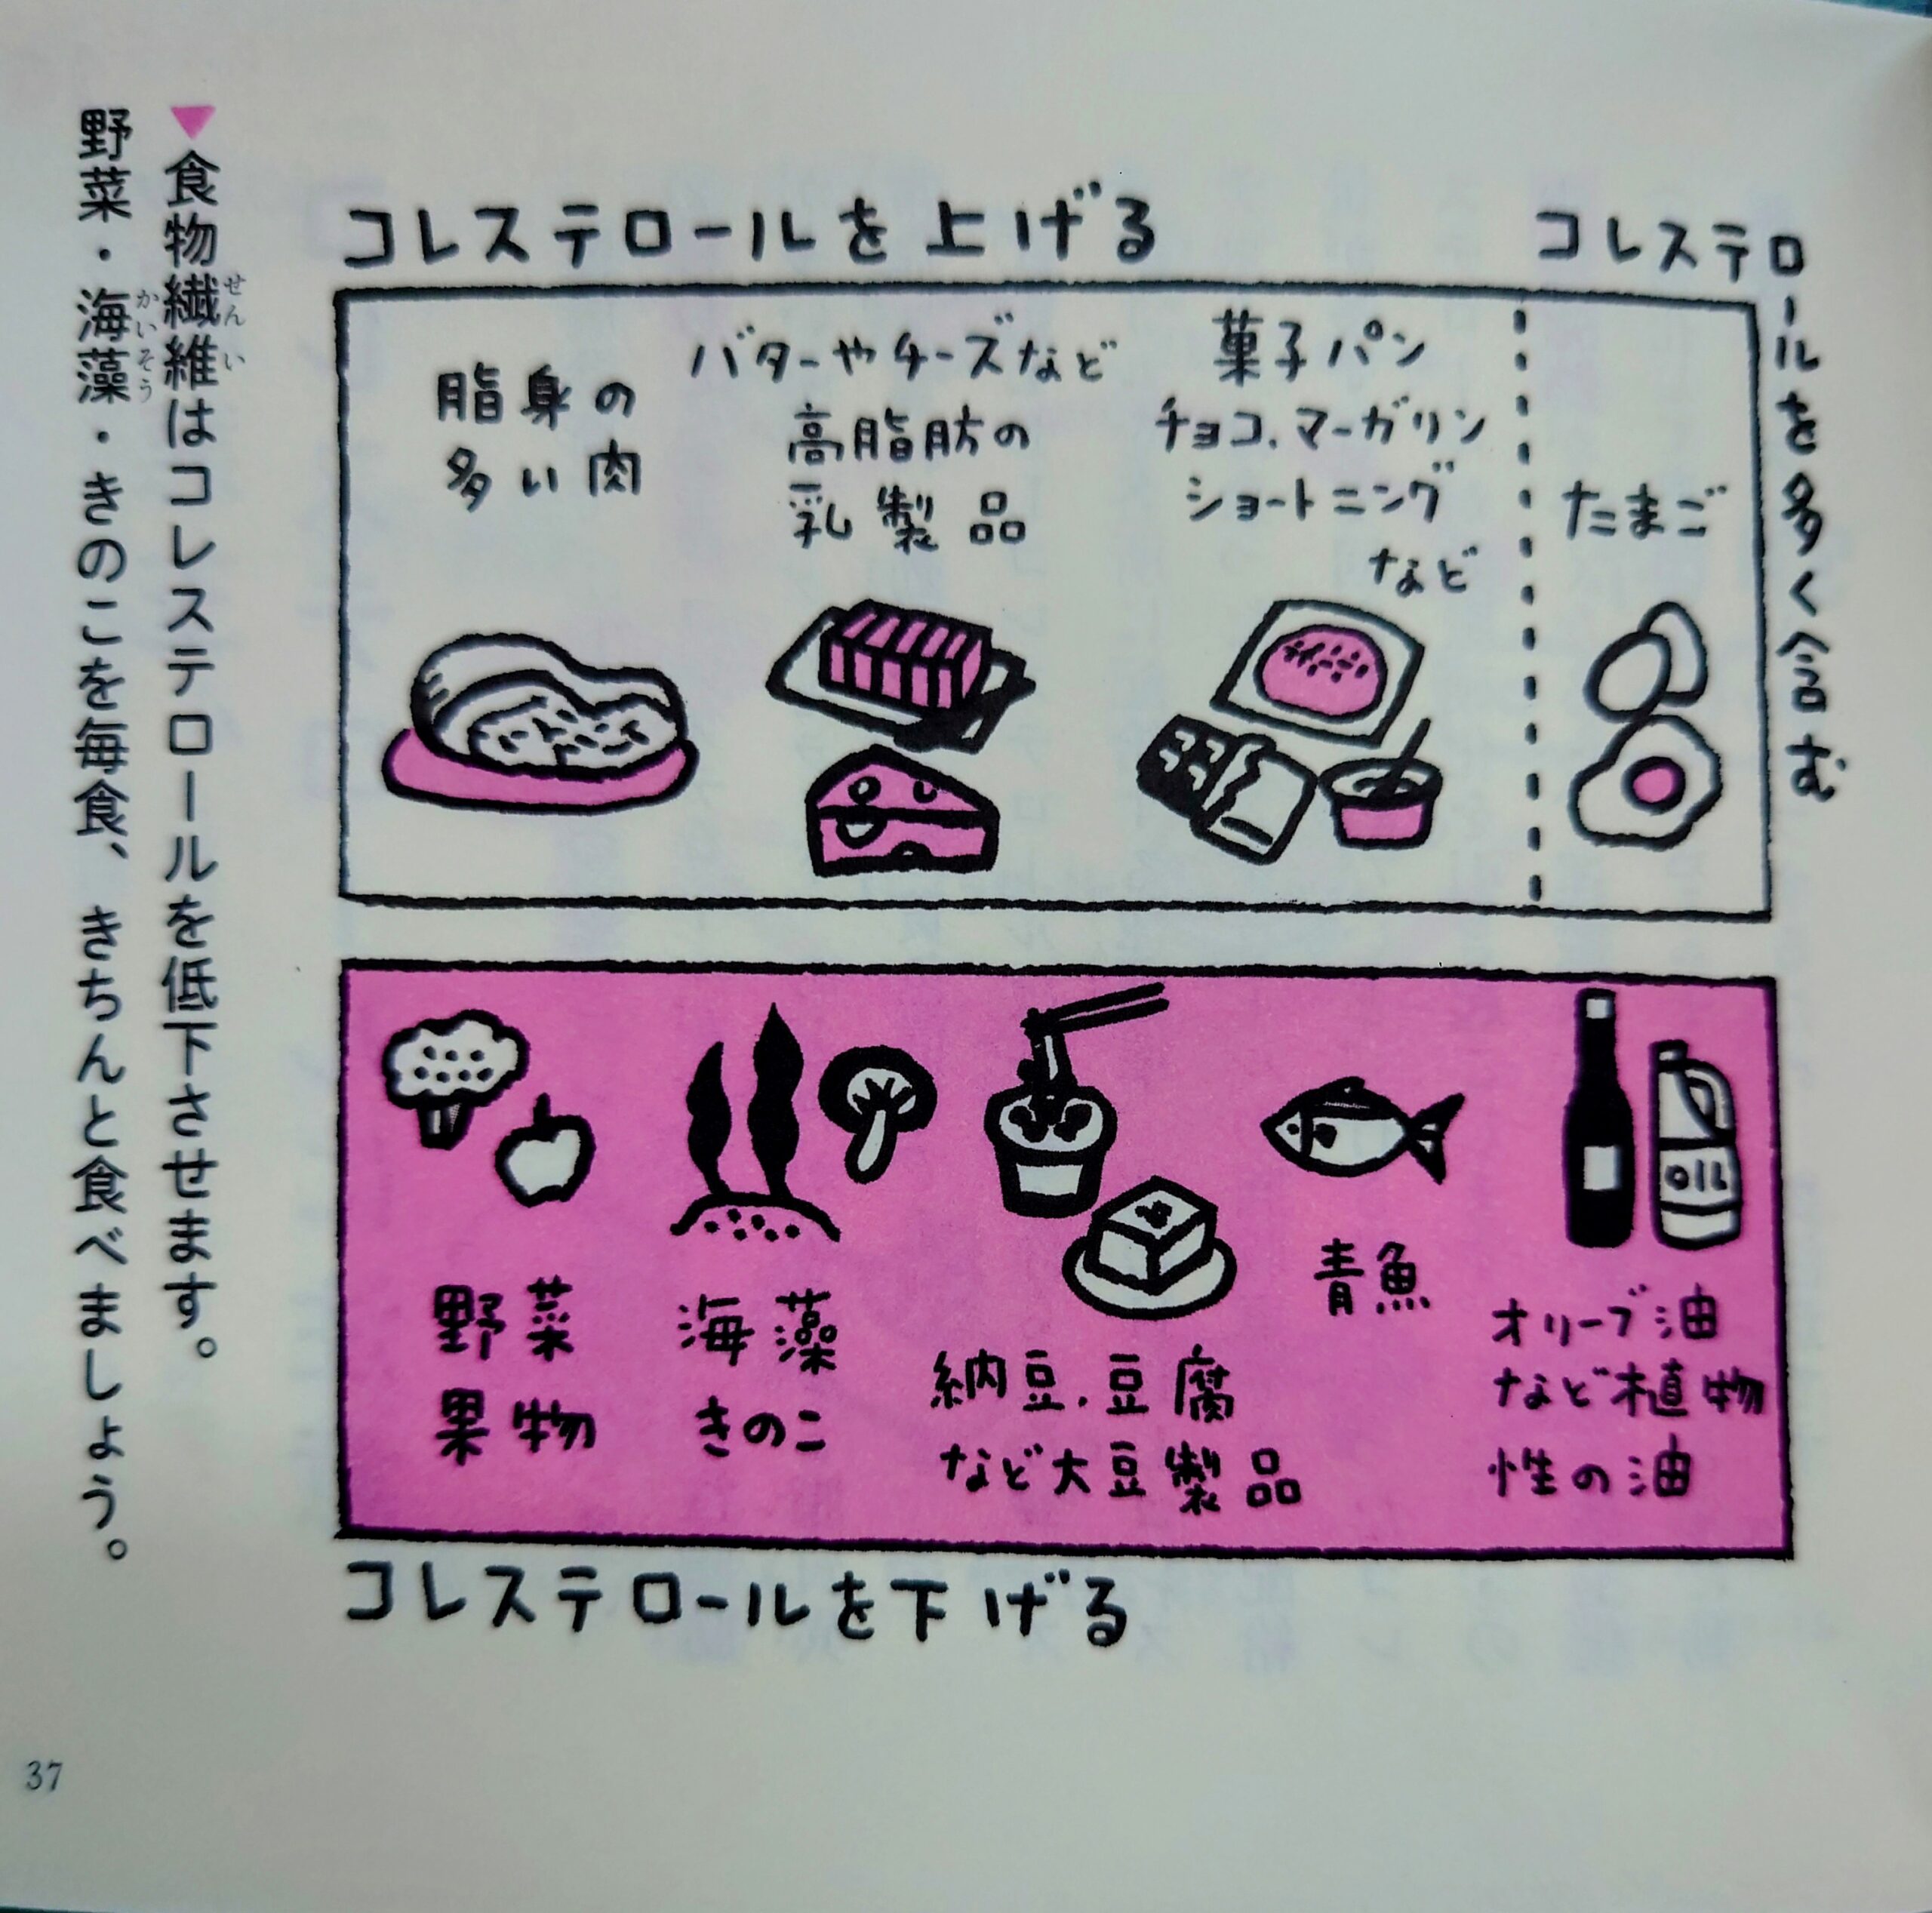 コレステロールを上げる
コレステロールを多く含む
脂身の
多い肉
バターやチーズなど
高脂肪の
乳製品
菓子パン
チョコ、マーガリン
ショートニング
など
たまご
OIL
野菜
果物
海藻
きのこ
納豆、豆腐
など大豆製品
青魚
オリーブ油
など植物
性の油
コレステロールを下げる
▼食物繊維はコレステロールを低下させます。
せんい
野菜・海藻・きのこを毎食、きちんと食べましょう。
かいそう
37